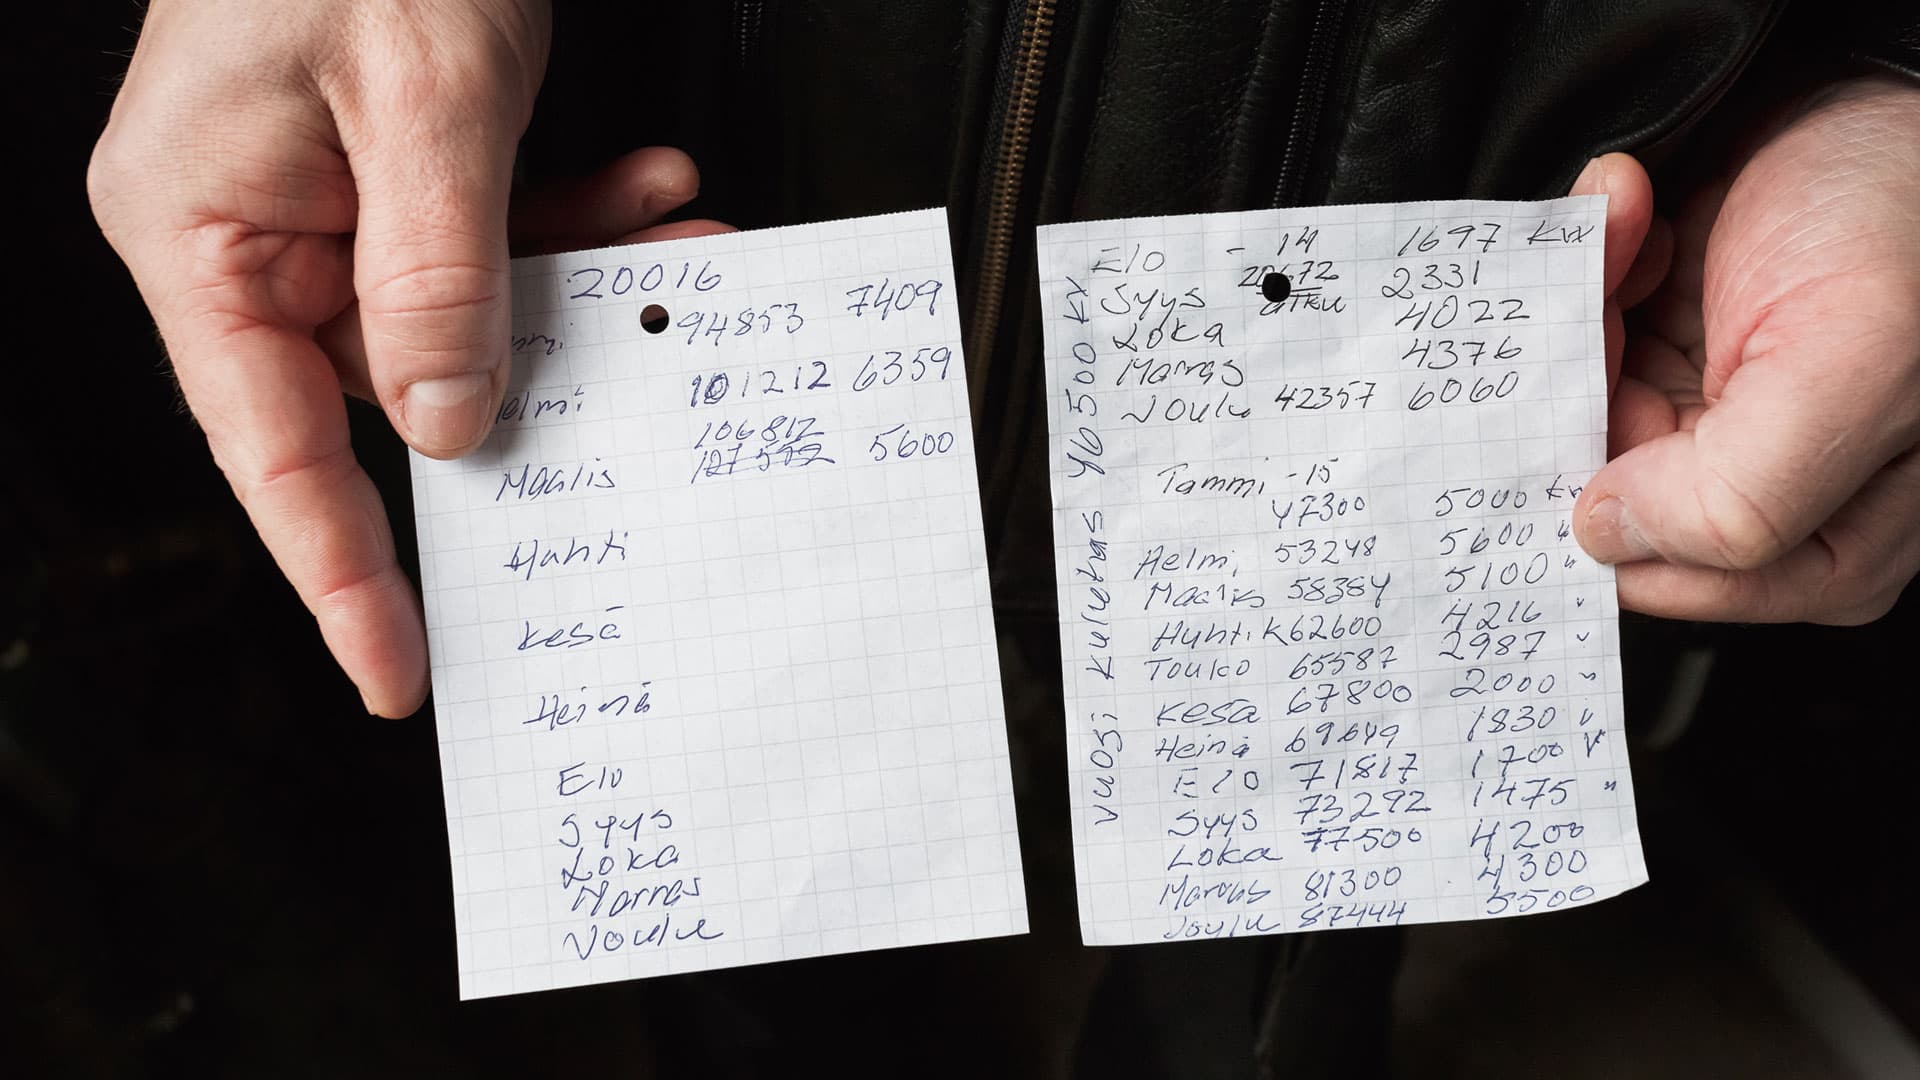 20016
mmi 94853 7409
elmi 101212 6359
106812
Maalis 5600
Huhti
Kesä
Heinä
Elo
Syys
Loka
Marras
Joulu
Elo - 14 1697 KW
Syys 2331
alku
Loka 4022
Marras 4376
Joulu 42357 6060
Tammi -15
47300 5000 kw
Helmi 53248 5600 "
Maalis 58384 5100 "
Huhti K62600 4216 "
Touko 65587 2987 "
Kesä 67800 2000 "
Heinä 69649 1830 "
Elo 71817 1700 "
Syys 73292 1475 "
Loka 77500 4200
Marras 81300 4300
Joulu 87444 5500
vuosi kulutus 46500 KW